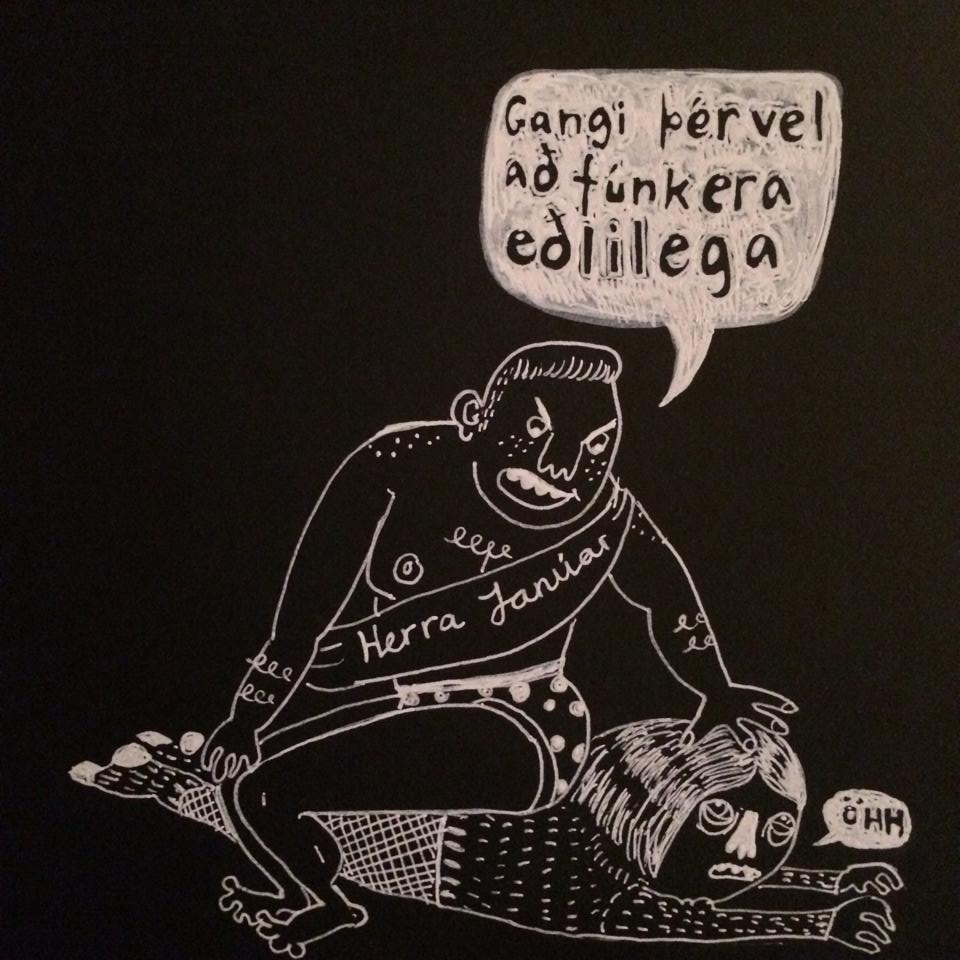 Gangi þér vel
að fúnkera
eðlilega
Herra Janúar
ÖHH